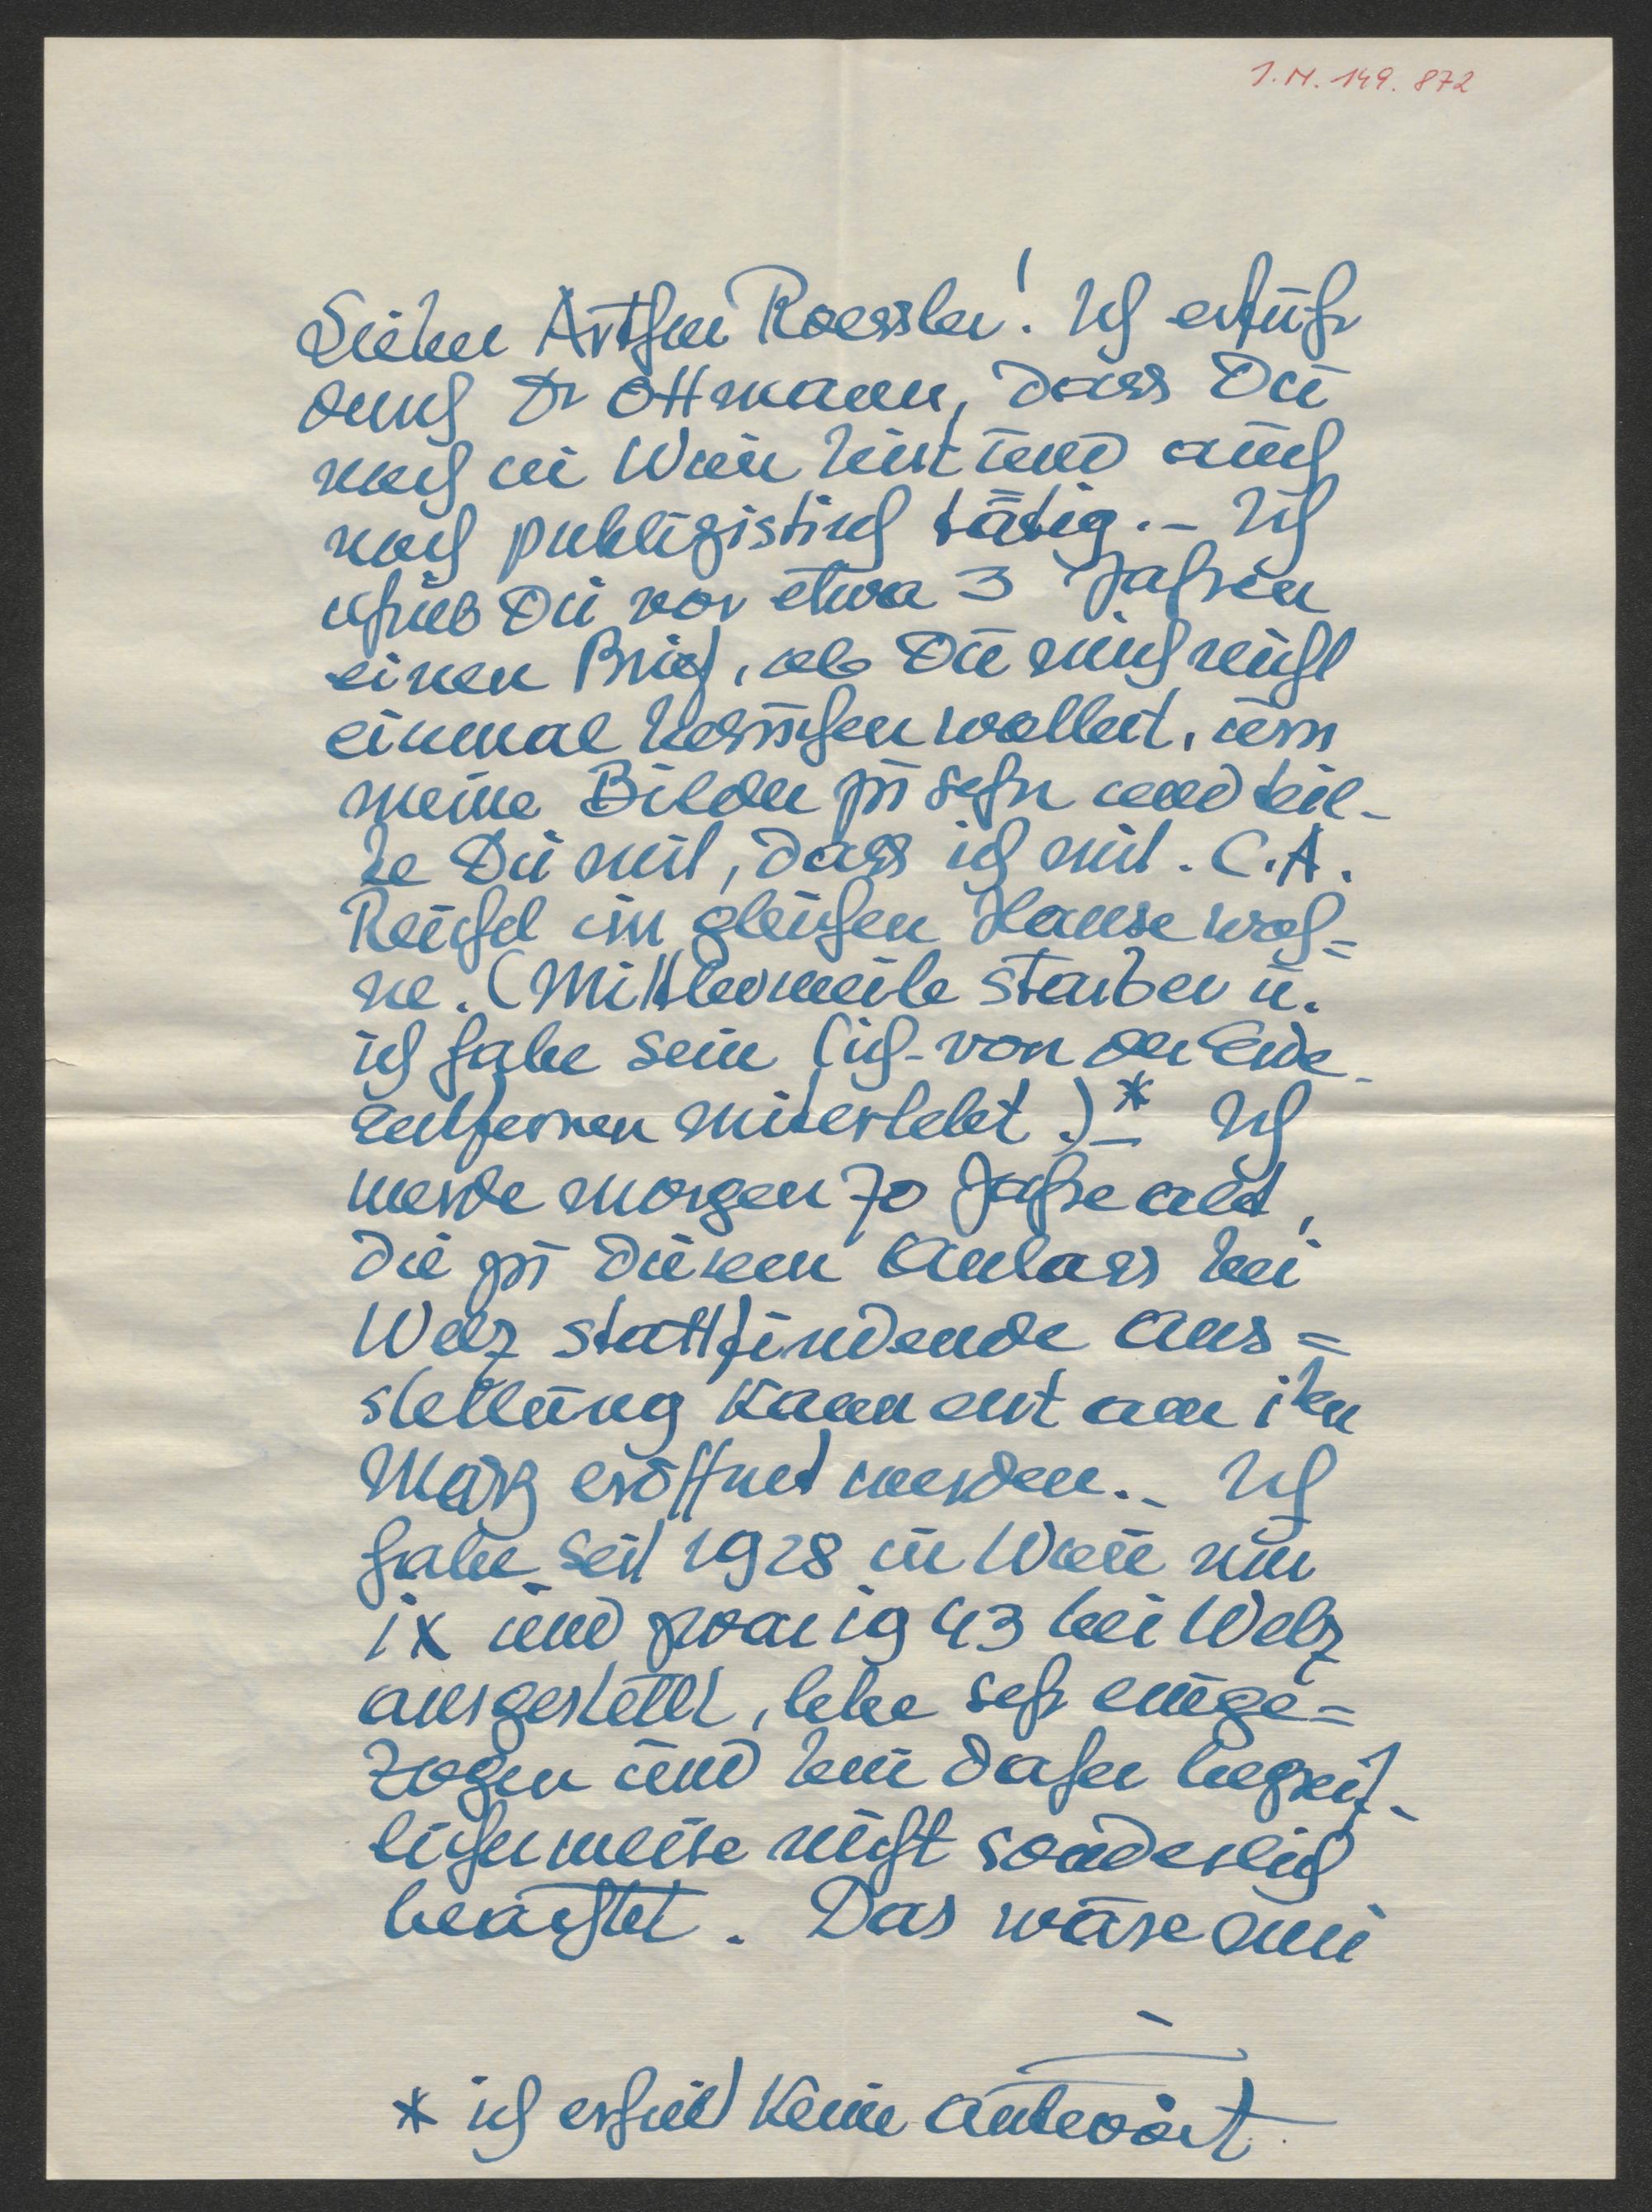 J.N. 149.872
Lieber Arthur Roessler! Ich erfuhr
durch Dr Ottmann, dass Du
noch in Wien bist und auch
noch publizistisch tätig. – Ich
schrieb Dir vor etwa 3 Jahren
einen Brief, ob Du mich nicht
einmal besuchen wolltest, um
meine Bilder zu sehn und teil-
te Dir mit, dass ich mit C. A.
Reichel im gleichen Hause woh=
ne. (Mittlerweile starb er u.
ich habe sein sich-von der Erde-
entfernen miterlebt.)* – Ich
werde morgen 70 Jahre alt,
die zu diesem Anlass bei
Welz stattfindende Aus=
stellung kann erst am 1ten
März eröffnet werden. – Ich
habe seit 1928 in Wien nur
1x und zwar 1943 bei Welz
ausgestellt, lebe sehr einge=
zogen und bin daher begreif-
licherweise nicht sonderlich
beachtet. Das wäre mir
* ich erhielt keine Antwort